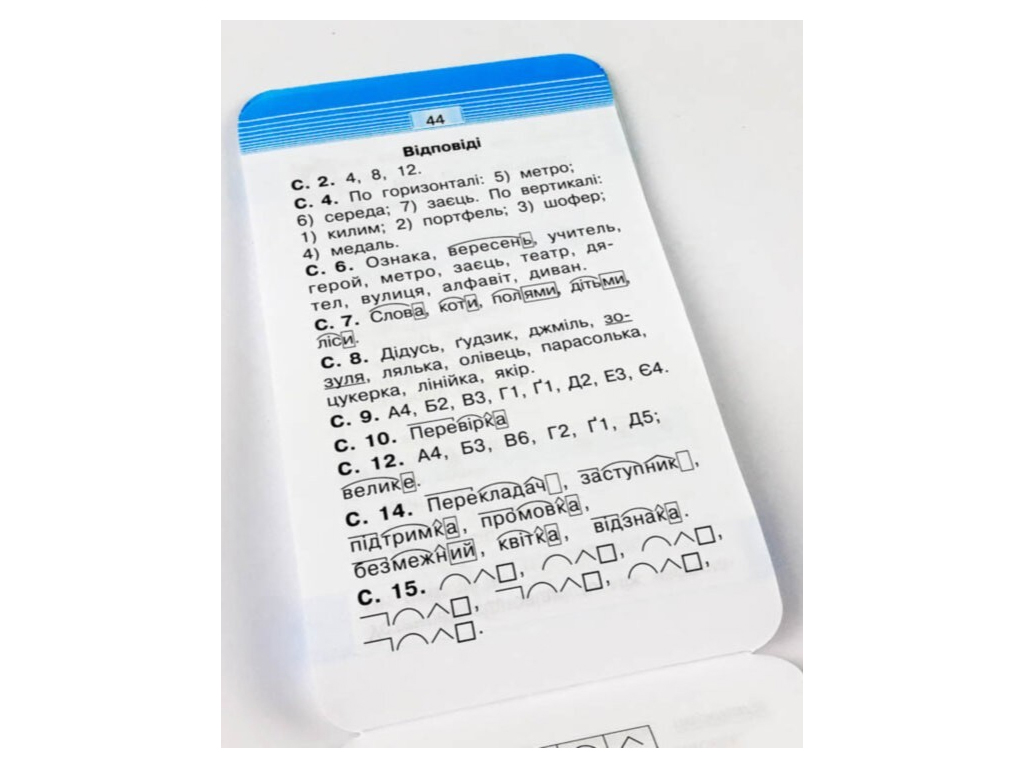 44
Відповіді
С. 2. 4, 8, 12.
С. 4. По горизонталі: 5) метро;
6) середа; 7) заєць. По вертикалі:
1) килим; 2) портфель; 3) шофер;
4) медаль.
С. 6. Ознака, вересень, учитель,
герой, метро, заєць, театр, дя-
тел, вулиця, алфавіт, диван.
С. 7. Слова, коти, полями, дітьми,
ліси.
С. 8. Дідусь, ґудзик, джміль, зо-
зуля, лялька, олівець, парасолька,
цукерка, лінійка, якір.
С. 9. А4, Б2, В3, Г1, Ґ1, Д2, Е3, Є4.
С. 10. Перевірка
С. 12. А4, Б3, В6, Г2, Ґ1, Д5;
велике.
С. 14. Перекладач, заступник,
підтримка, промовка,
безмежний, квітка, відзнака.
С. 15.